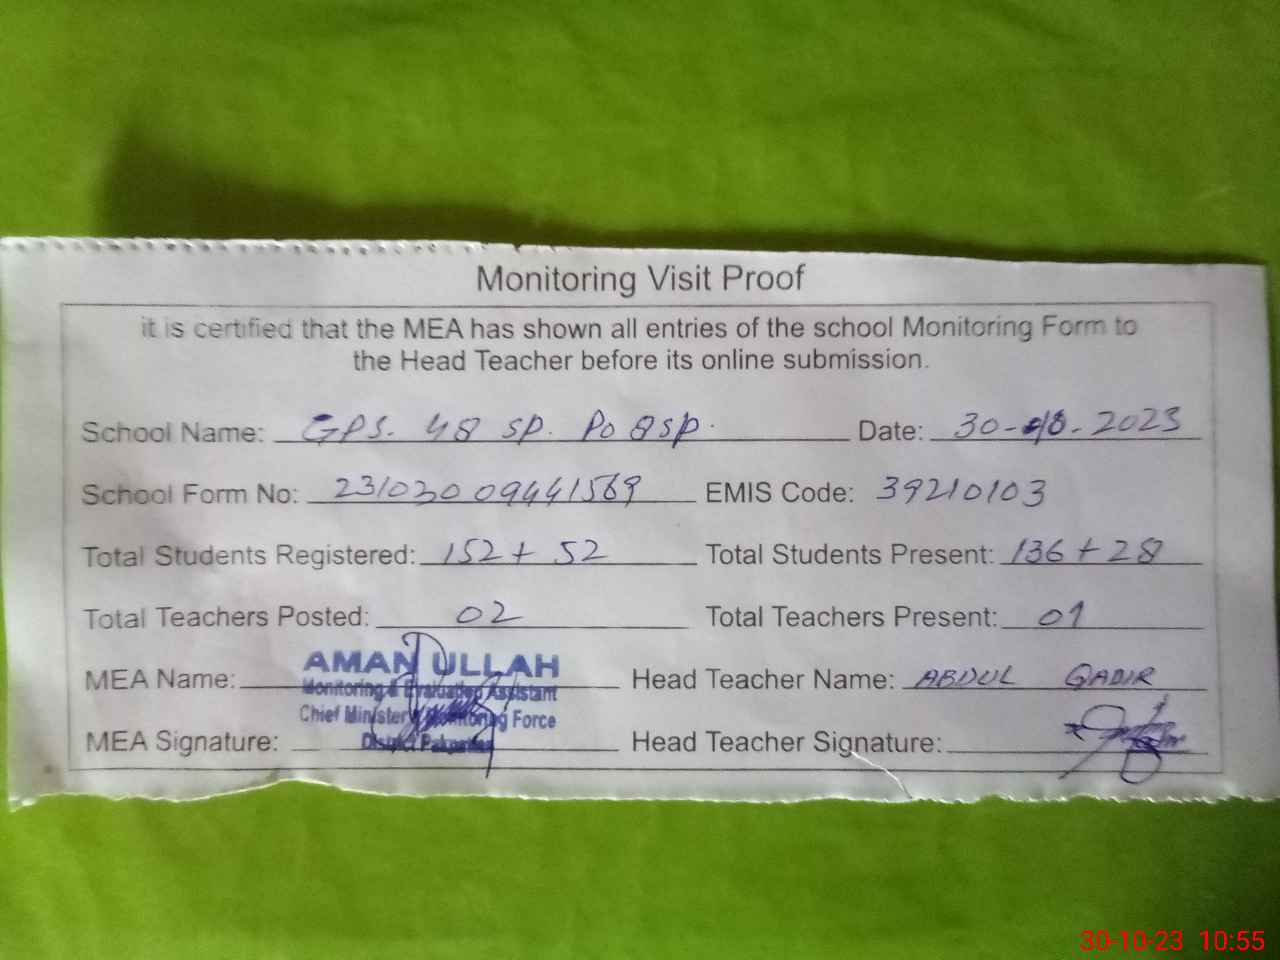 Monitoring Visit Proof
it is certified that the MEA has shown all entries of the school Monitoring Form to
the Head Teacher before its online submission.
School Name: GPS. 48 SP. Po 8 SP. Date: 30-10-2023
School Form No: 23103009441569 EMIS Code: 39210103
Total Students Registered: 152 + 52 Total Students Present: 136 + 28
Total Teachers Posted: 02 Total Teachers Present: 01
AMAN ULLAH
MEA Name: Monitoring & Evaluation Assistant Head Teacher Name: ABDUL QADIR
Chief Minister's Monitoring Force
MEA Signature: District Pakpattan Head Teacher Signature:
30-10-23 10:55